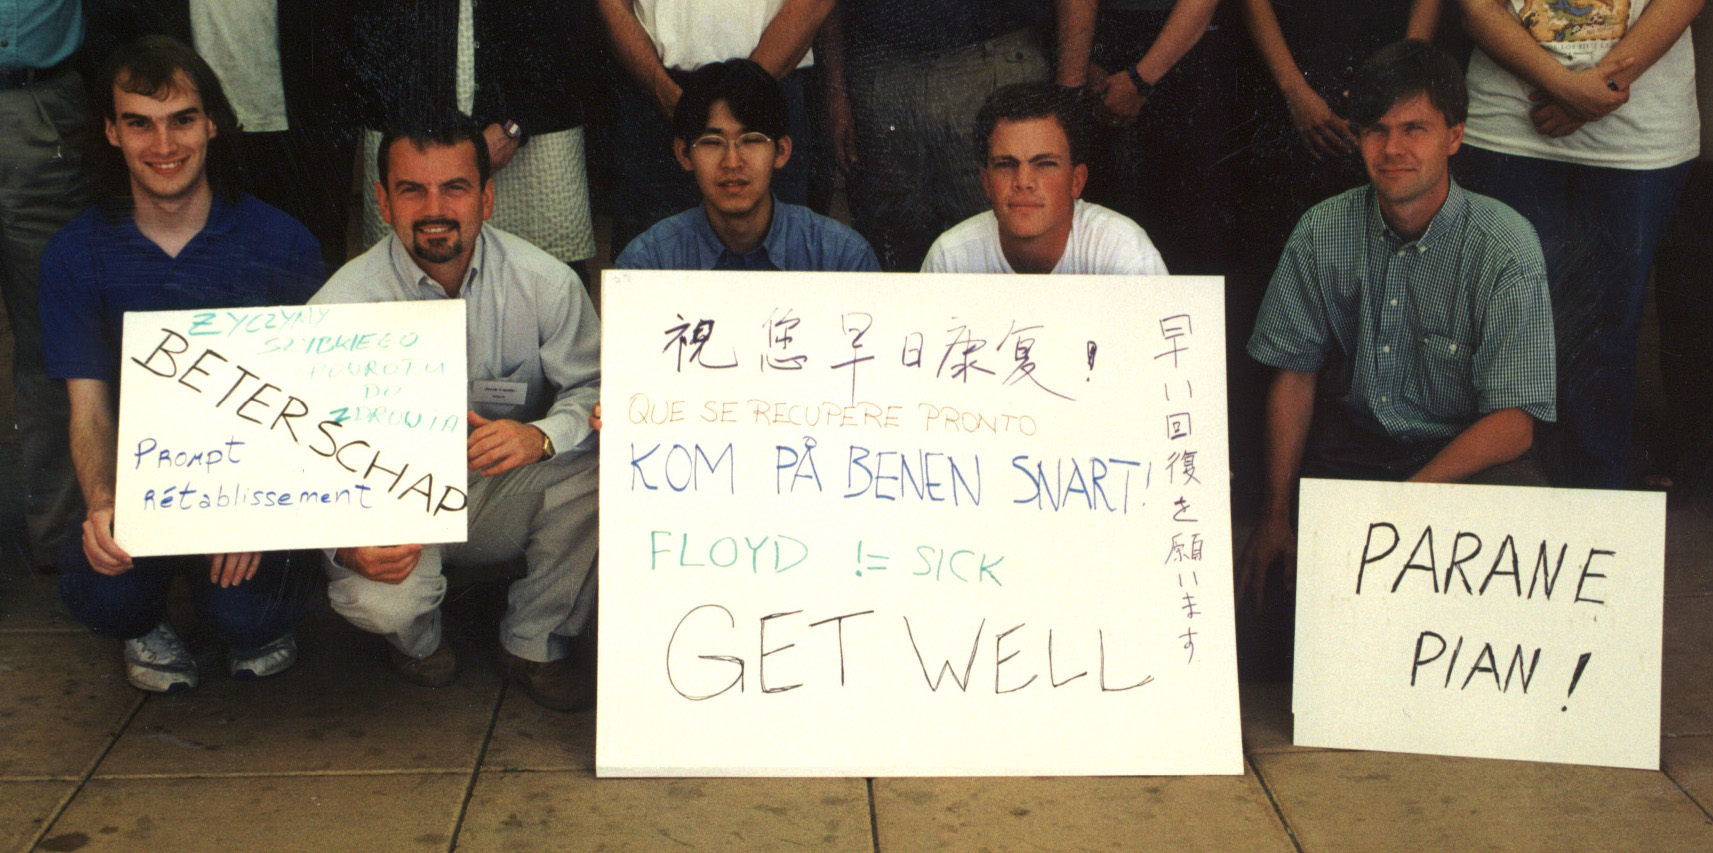 ŻYCZYMY
SZYBKIEGO
POWROTU
DO
ZDROWIA
BETERSCHAP
Prompt
Rétablissement
祝您早日康复!
QUE SE RECUPERE PRONTO
KOM PÅ BENEN SNART!
FLOYD != SICK
GET WELL
早い回復を願います
PARANE
PIAN!